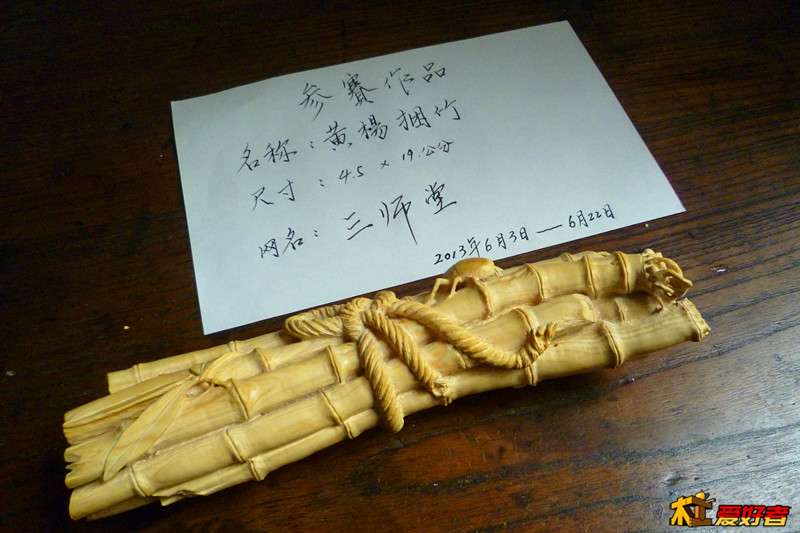 参赛作品
名称：黄楊捆竹
尺寸：4.5 × 19.公分
网名：三师堂
2013年6月3日 — 6月22日
木工爱好者